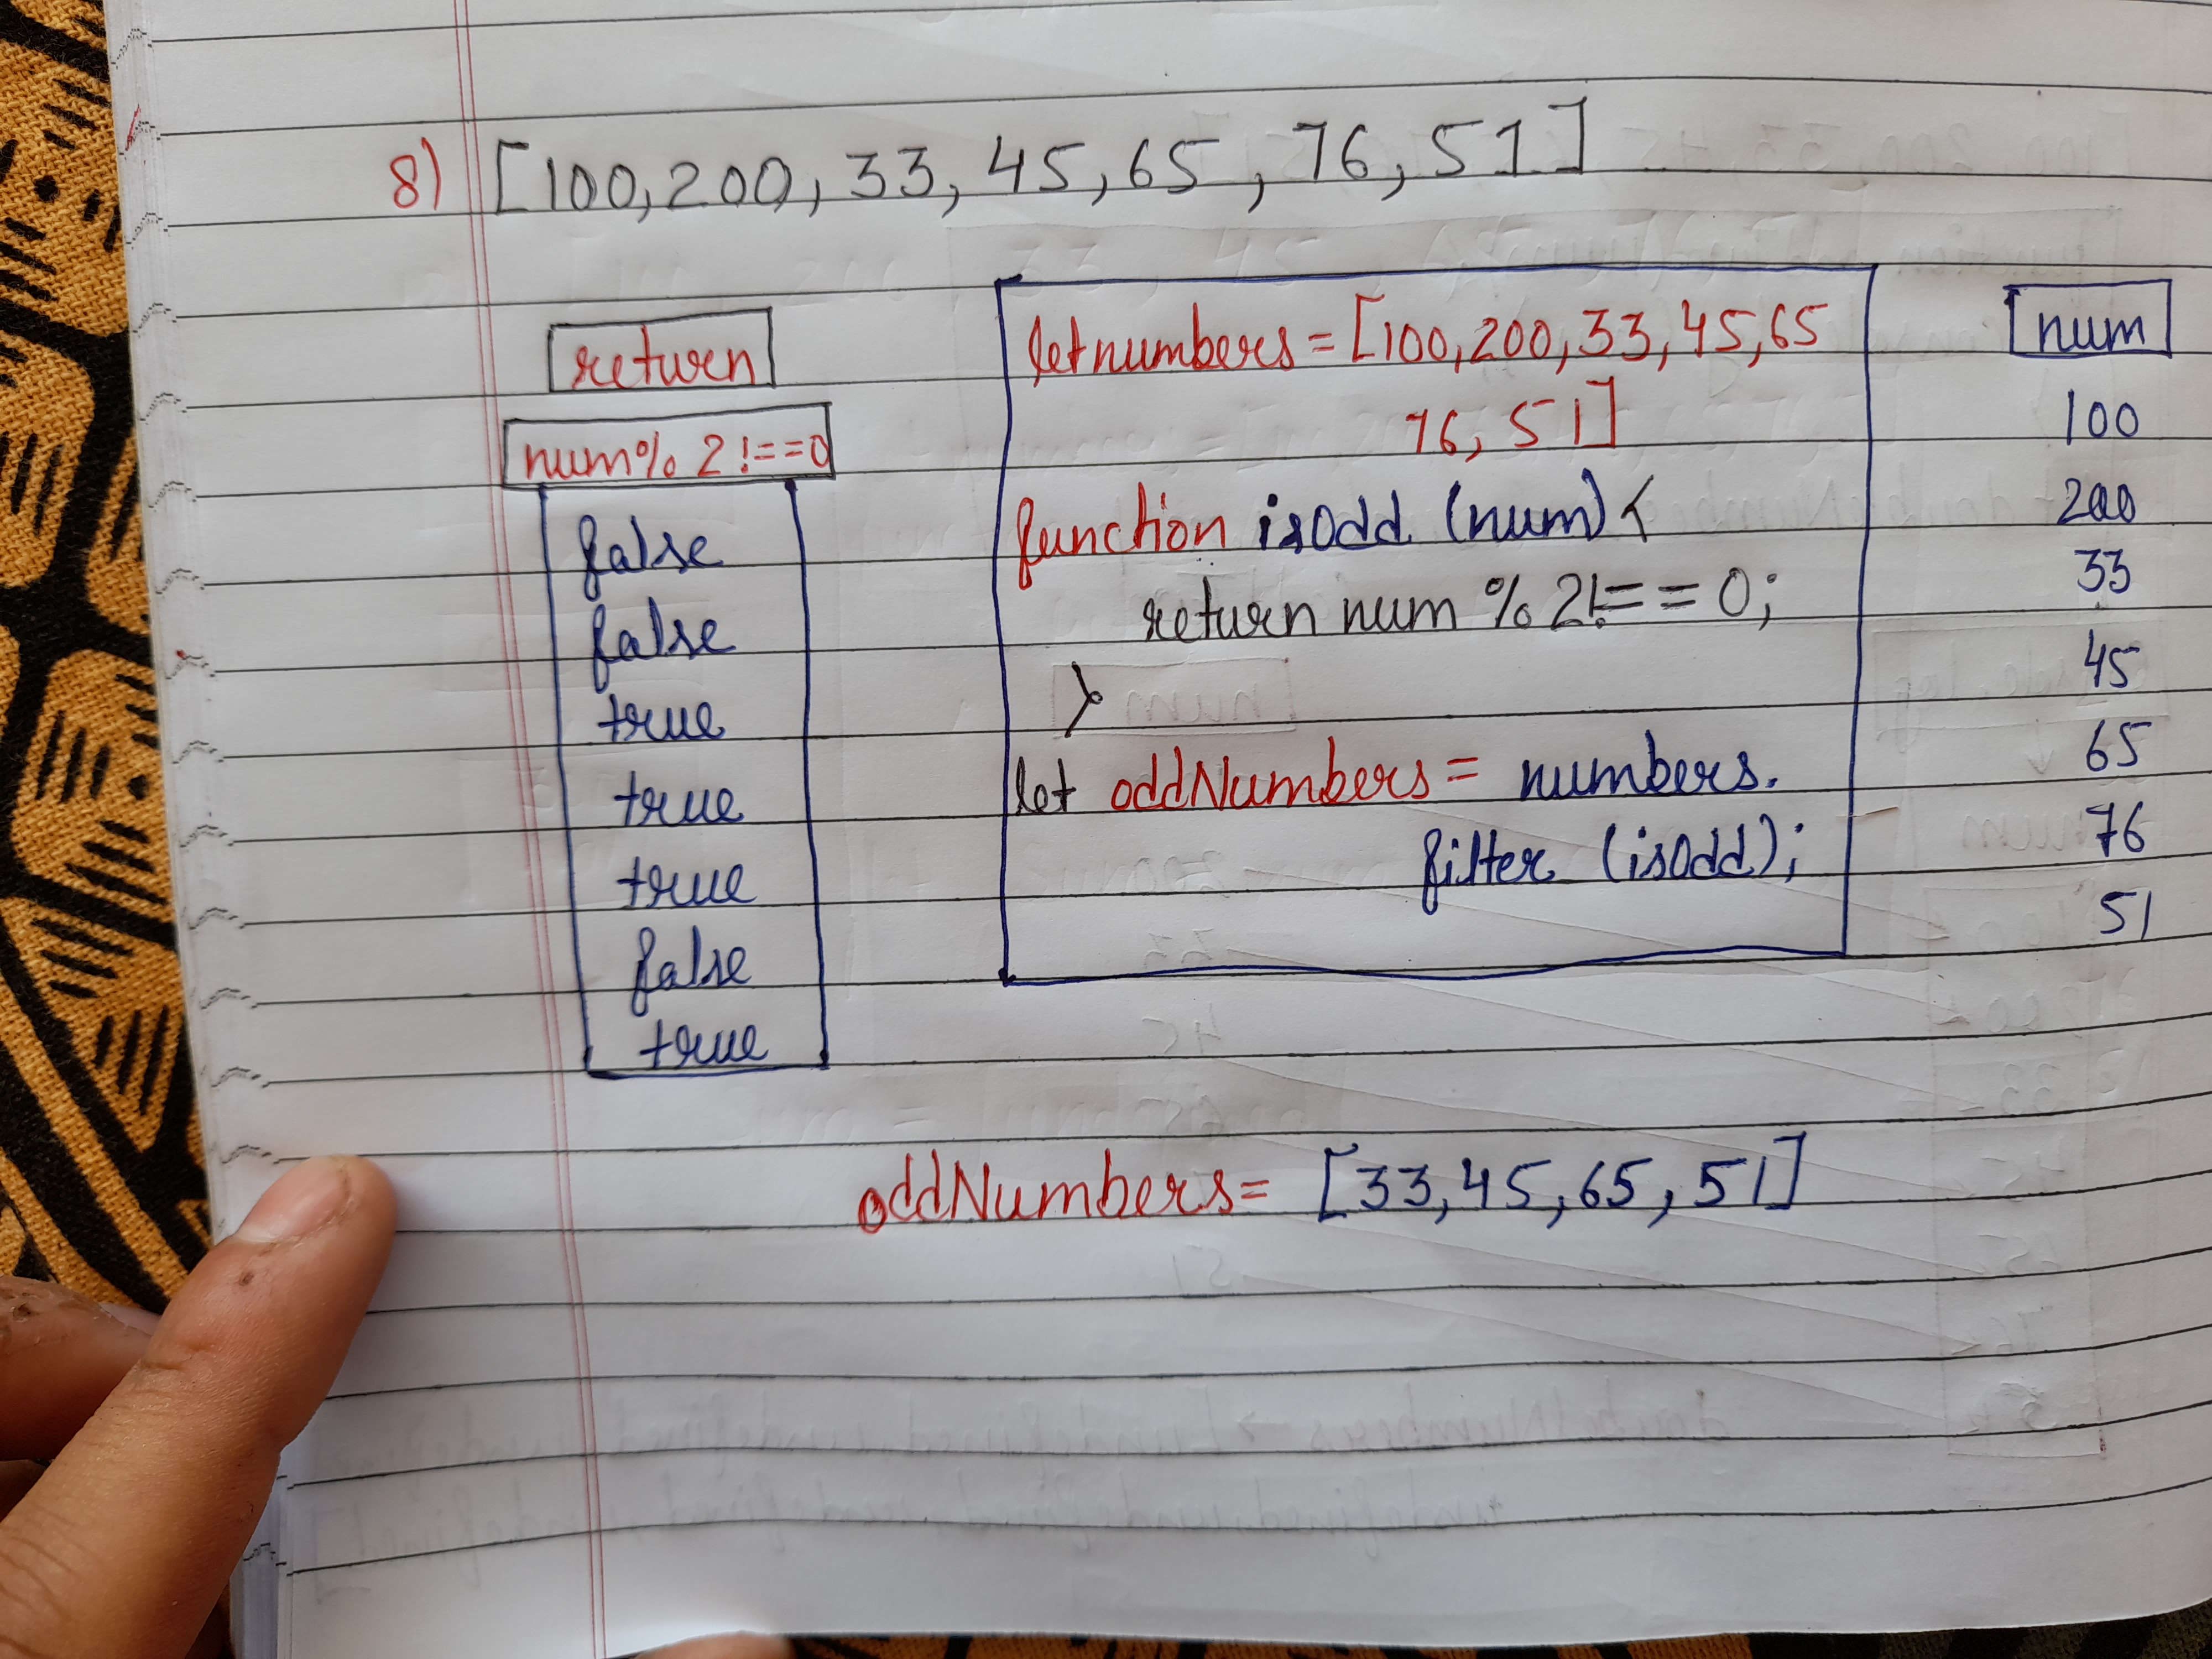 8) [100,200,33,45,65,76,51]
return
num%2!==0
false
false
true
true
true
false
true
let numbers=[100,200,33,45,65
76,51]
function isodd (num) {
return num%2!==0;
}
let oddNumbers = numbers.
filter (isodd);
num
100
200
33
45
65
76
51
oddNumbers= [33,45,65,51]